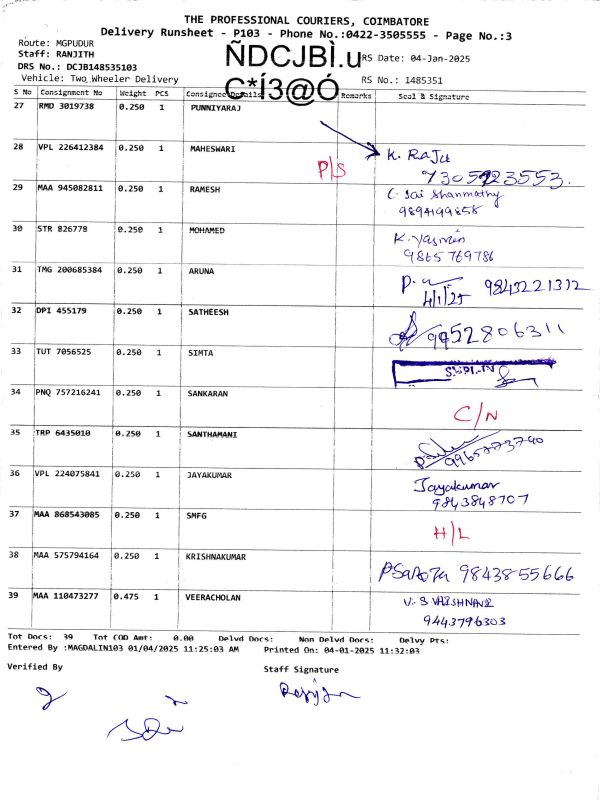 THE PROFESSIONAL COURIERS, COIMBATORE
Delivery Runsheet - P103 - Phone No.:0422-3505555 - Page No.:3
Route: MGPUDUR
Staff: RANJITH
ÑDCJBÌ.u
RS Date: 04-Jan-2025
DRS No.: DCJB148535103
Vehicle: Two Wheeler Delivery
C*Í3@Ó
RS No.: 1485351
S No Consignment No Weight PCS Consignee Details Remarks Seal & Signature
27 RMD 3019738 0.250 1 PUNNIYARAJ
28 VPL 226412384 0.250 1 MAHESWARI P/S K. RAJU
7305923553.
29 MAA 945082811 0.250 1 RAMESH C. Sai Shanmathy
9894199858
30 STR 826778 0.250 1 MOHAMED K. Yasmin
9865769786
31 TMG 200685384 0.250 1 ARUNA 9843221312
4/1/25
32 DPI 455179 0.250 1 SATHEESH 9952806311
33 TUT 7056525 0.250 1 SIMTA
34 PNQ 757216241 0.250 1 SANKARAN C/N
35 TRP 6435010 0.250 1 SANTHAMANI 9965773740
36 VPL 224075841 0.250 1 JAYAKUMAR Jayakumar
9843848707
37 MAA 868543085 0.250 1 SMFG H/L
38 MAA 575794164 0.250 1 KRISHNAKUMAR 9843855666
39 MAA 110473277 0.475 1 VEERACHOLAN V. S VAISHNAVI
9443796303
Tot Docs: 39 Tot COD Amt: 0.00 Delvd Docs: Non Delvd Docs: Delvy Pts:
Entered By :MAGDALIN103 01/04/2025 11:25:03 AM Printed On: 04-01-2025 11:32:03
Verified By Staff Signature